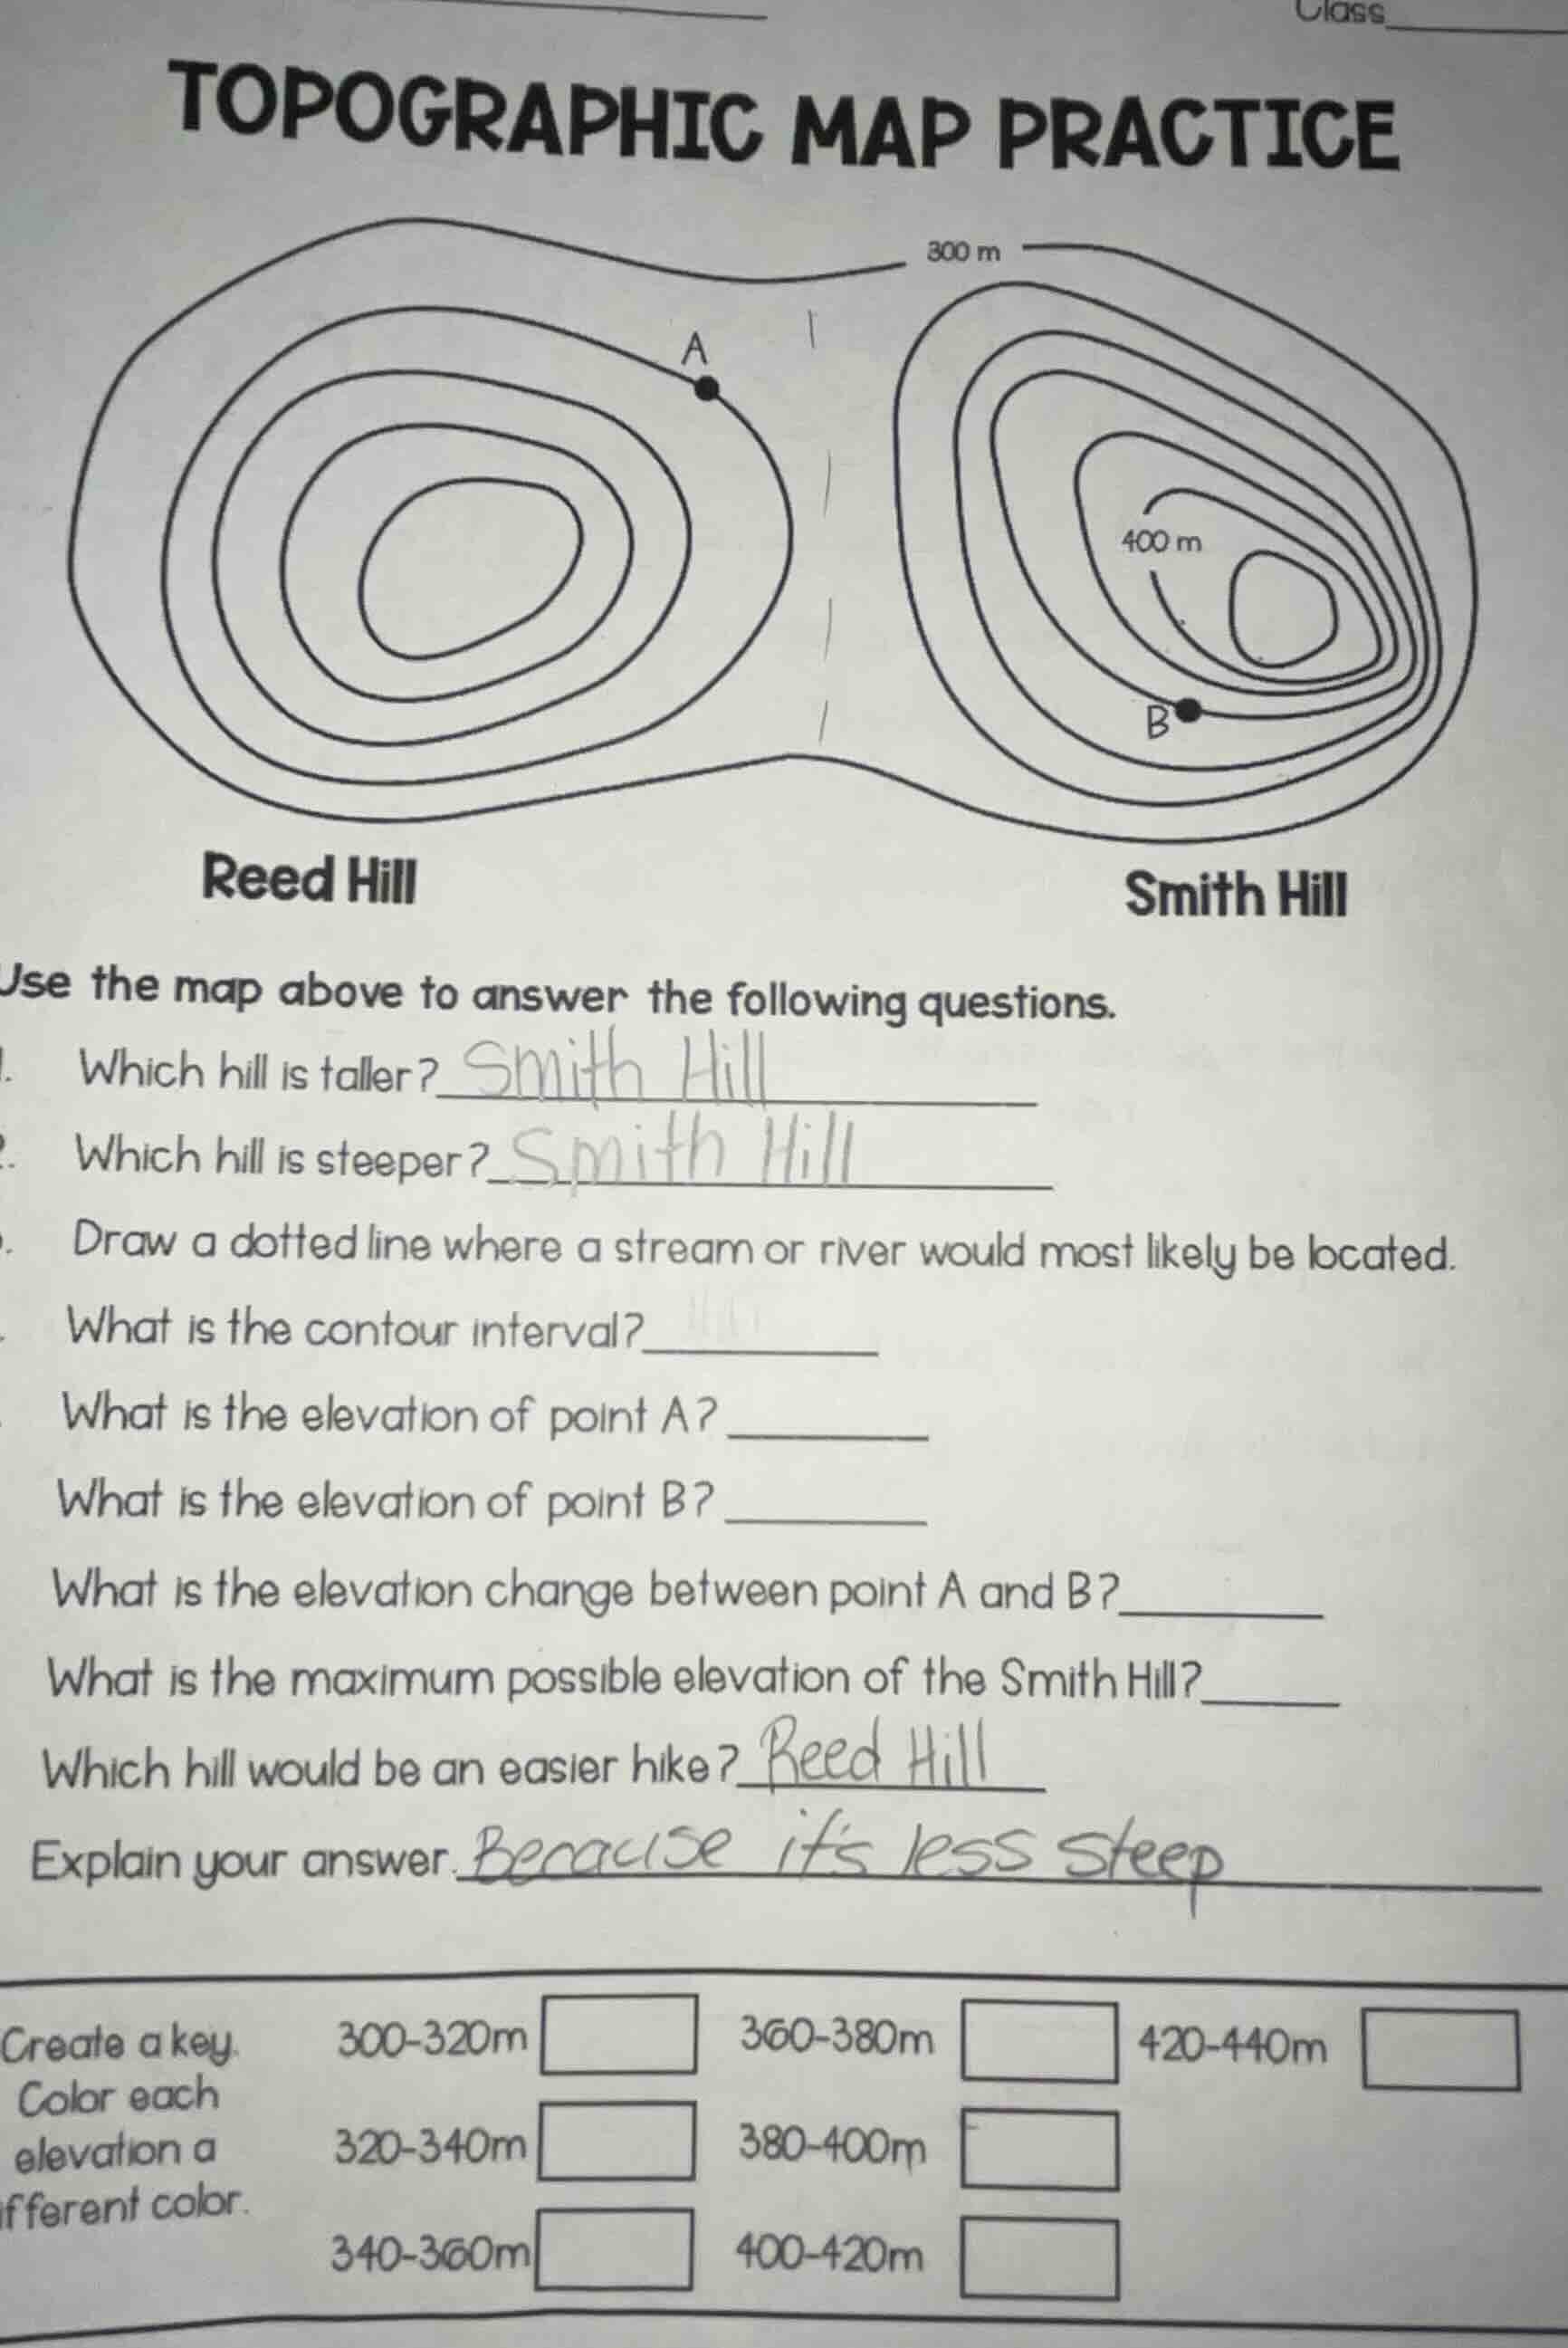 Class
TOPOGRAPHIC MAP PRACTICE
300 m
A
400 m
B
Reed Hill
Smith Hill
Use the map above to answer the following questions.
Which hill is taller? Smith Hill
Which hill is steeper? Smith Hill
Draw a dotted line where a stream or river would most likely be located.
What is the contour interval?
What is the elevation of point A?
What is the elevation of point B?
What is the elevation change between point A and B?
What is the maximum possible elevation of the Smith Hill?
Which hill would be an easier hike? Reed Hill
Explain your answer. Because it's less steep
Create a key.
Color each
elevation a
fferent color.
300-320m
360-380m
420-440m
320-340m
380-400m
340-360m
400-420m